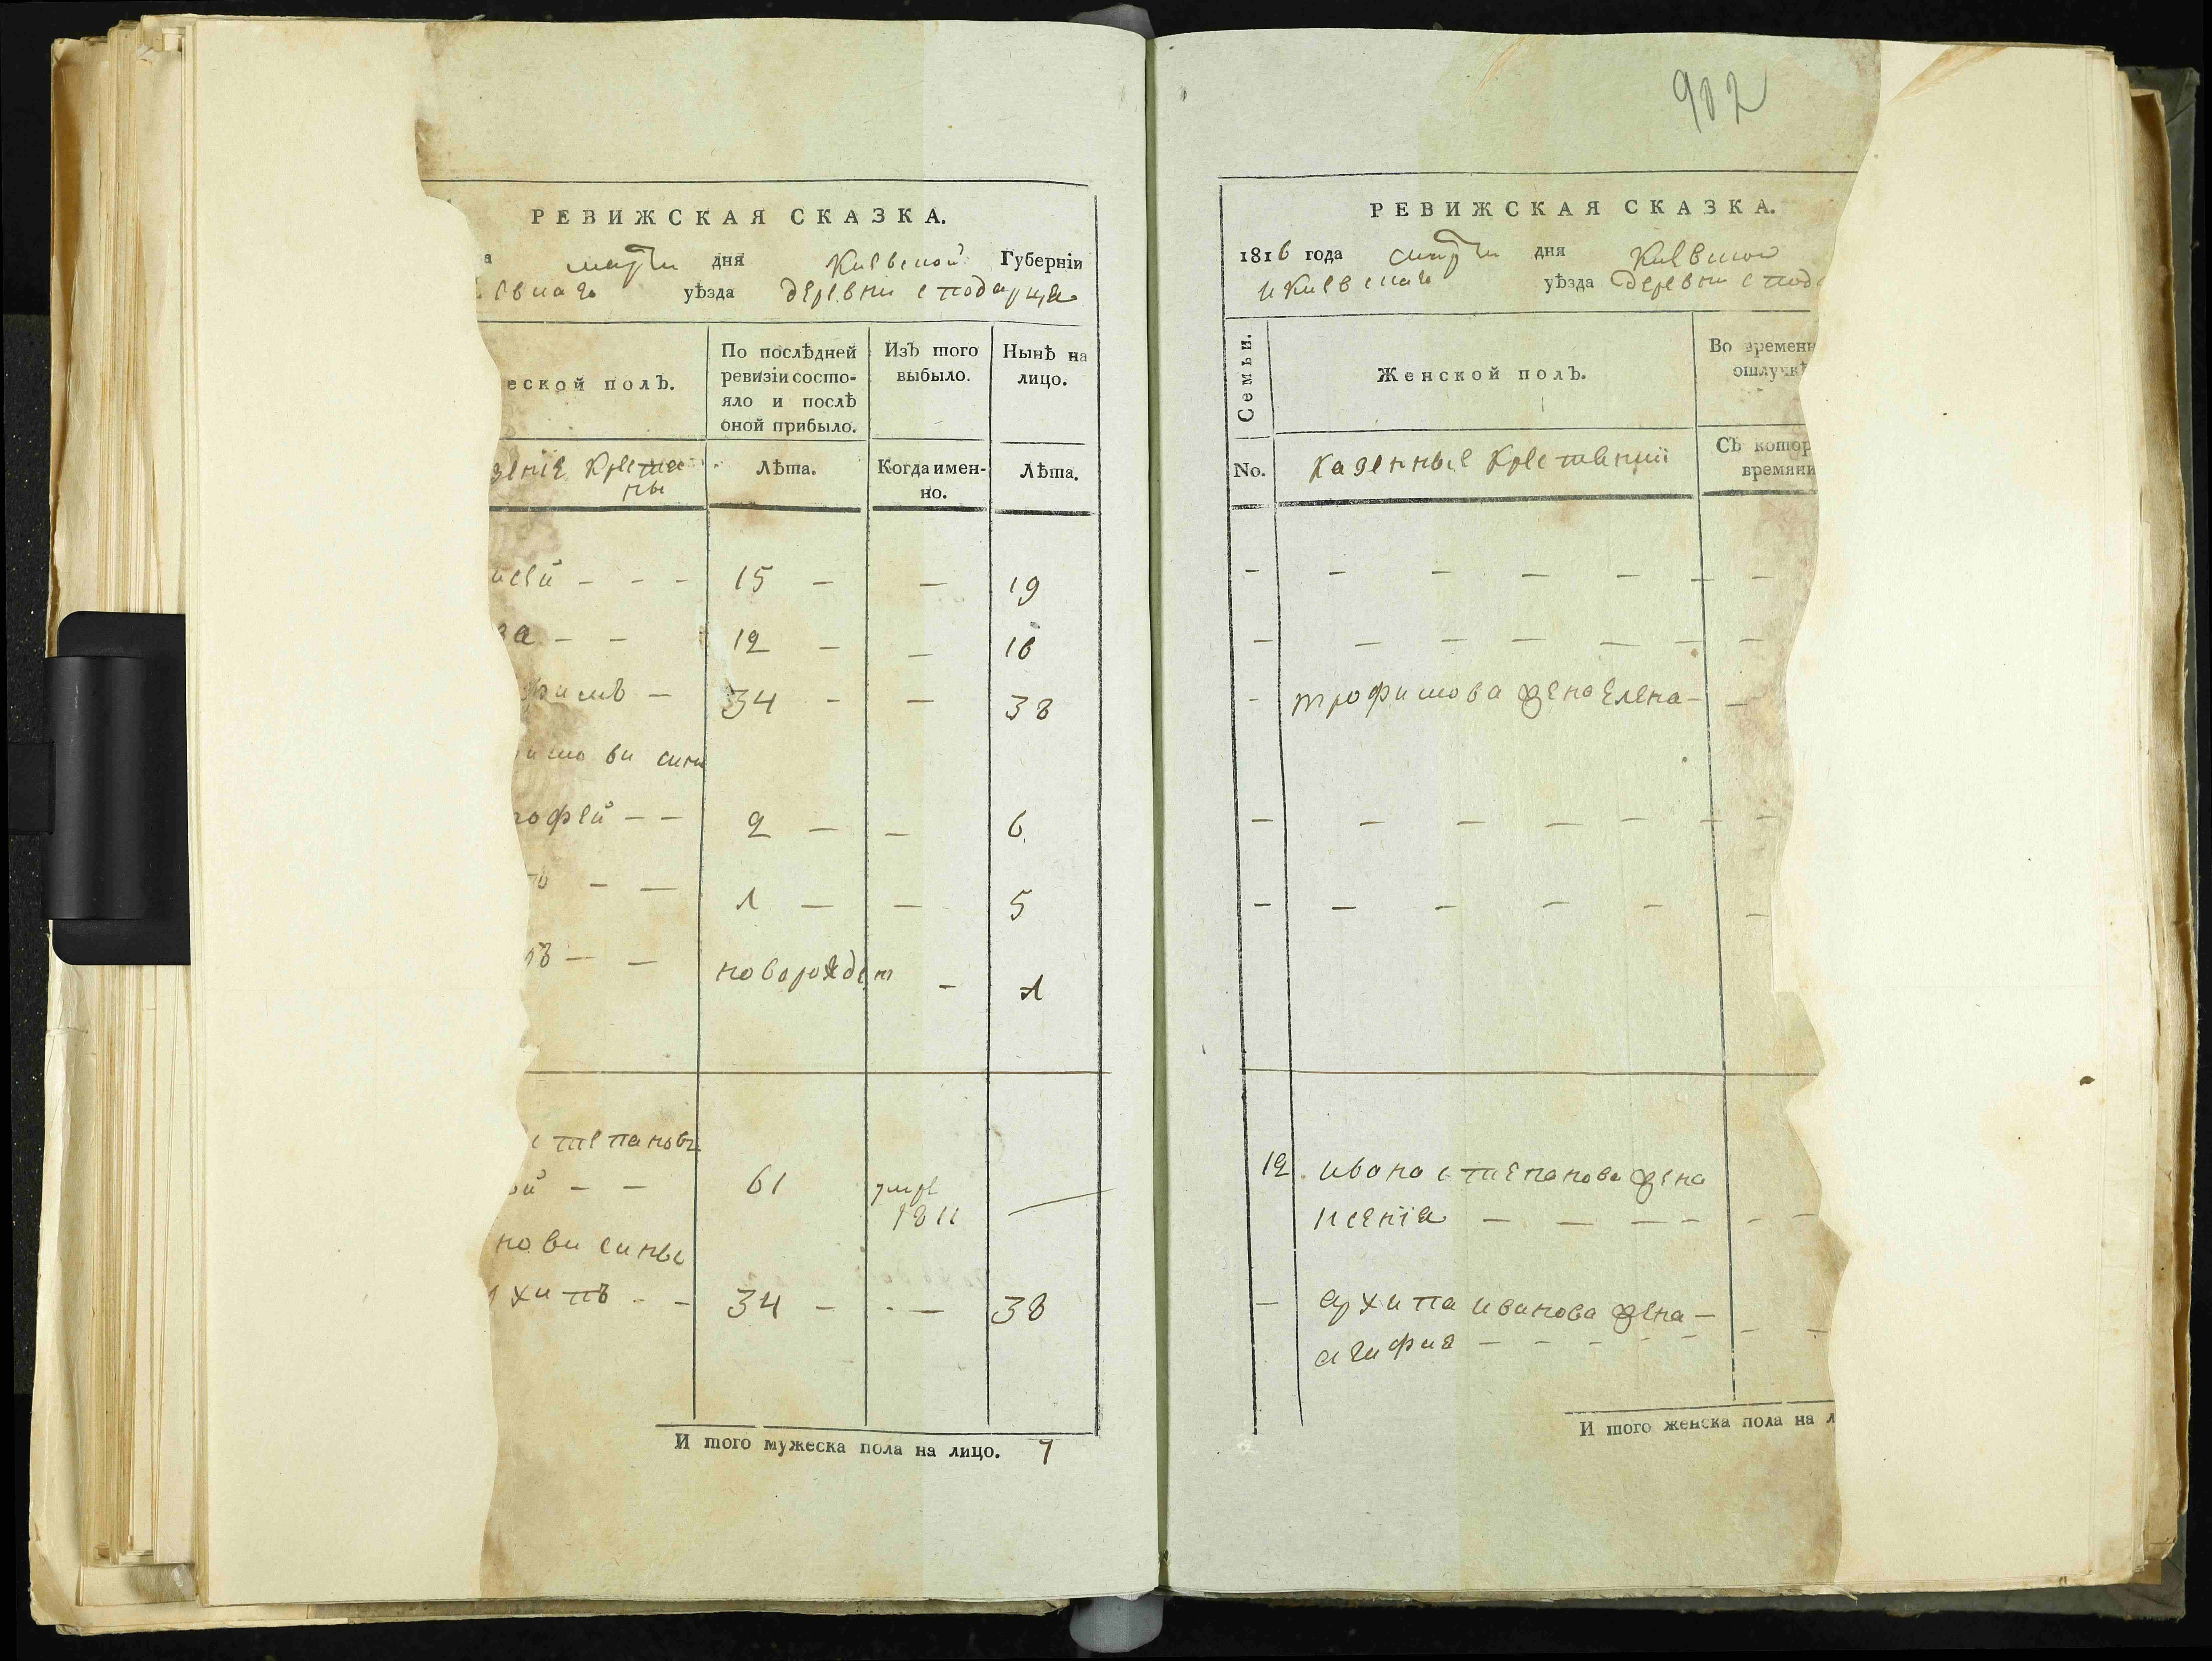 РЕВИЖСКАЯ СКАЗКА.
а марта дня Киевской Губерніи
евскаго уѣзда деревни стподарца
еской полъ.
По послѣдней ревизіи состо-
яло и послѣ
оной прибыло.
Изъ того
выбыло.
Нынѣ на
лицо.
зенніе крестья
ны
Лѣта.
Когда имен-
но.
Лѣта.
исей - - - 15 - - 19
ва - - 12 - - 16
фимъ - 34 - - 38
имови сини
рофей - - 2 - - 6
ъ - - 1 - - 5
ъ - - новорожден - 1
степановъ
ой - - 61 умре
1811 —
нови сины
хипъ - - 34 - - 38
И того мужеска пола на лицо. 7
902
РЕВИЖСКАЯ СКАЗКА.
1816 года марта дня Киевской
и Киевскаго уѣзда деревни стпод
Семьи.
Женской полъ.
Во времен
отлучкѣ
No.
казенные крестьянки
Съ котор
времяни
- - - - - - -
- - - - - - - -
- трофимова жена Елена - -
- - - - - - -
- - - - - -
12 ивана степанова жена
ксенія - - - - - -
- архипа иванова жена -
агафия - - - - - - -
И того женска пола на л